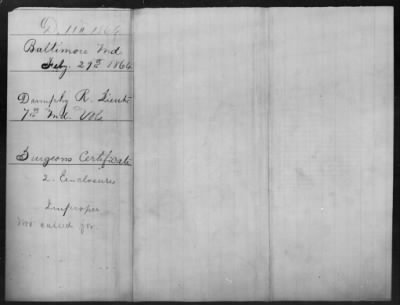 D. 110 1864
Baltimore Md
Feby. 29th 1864
Dumphy R. Lieut
7th Md. Vols
Surgeons Certificate
2. Enclosures
Improper
not called for.